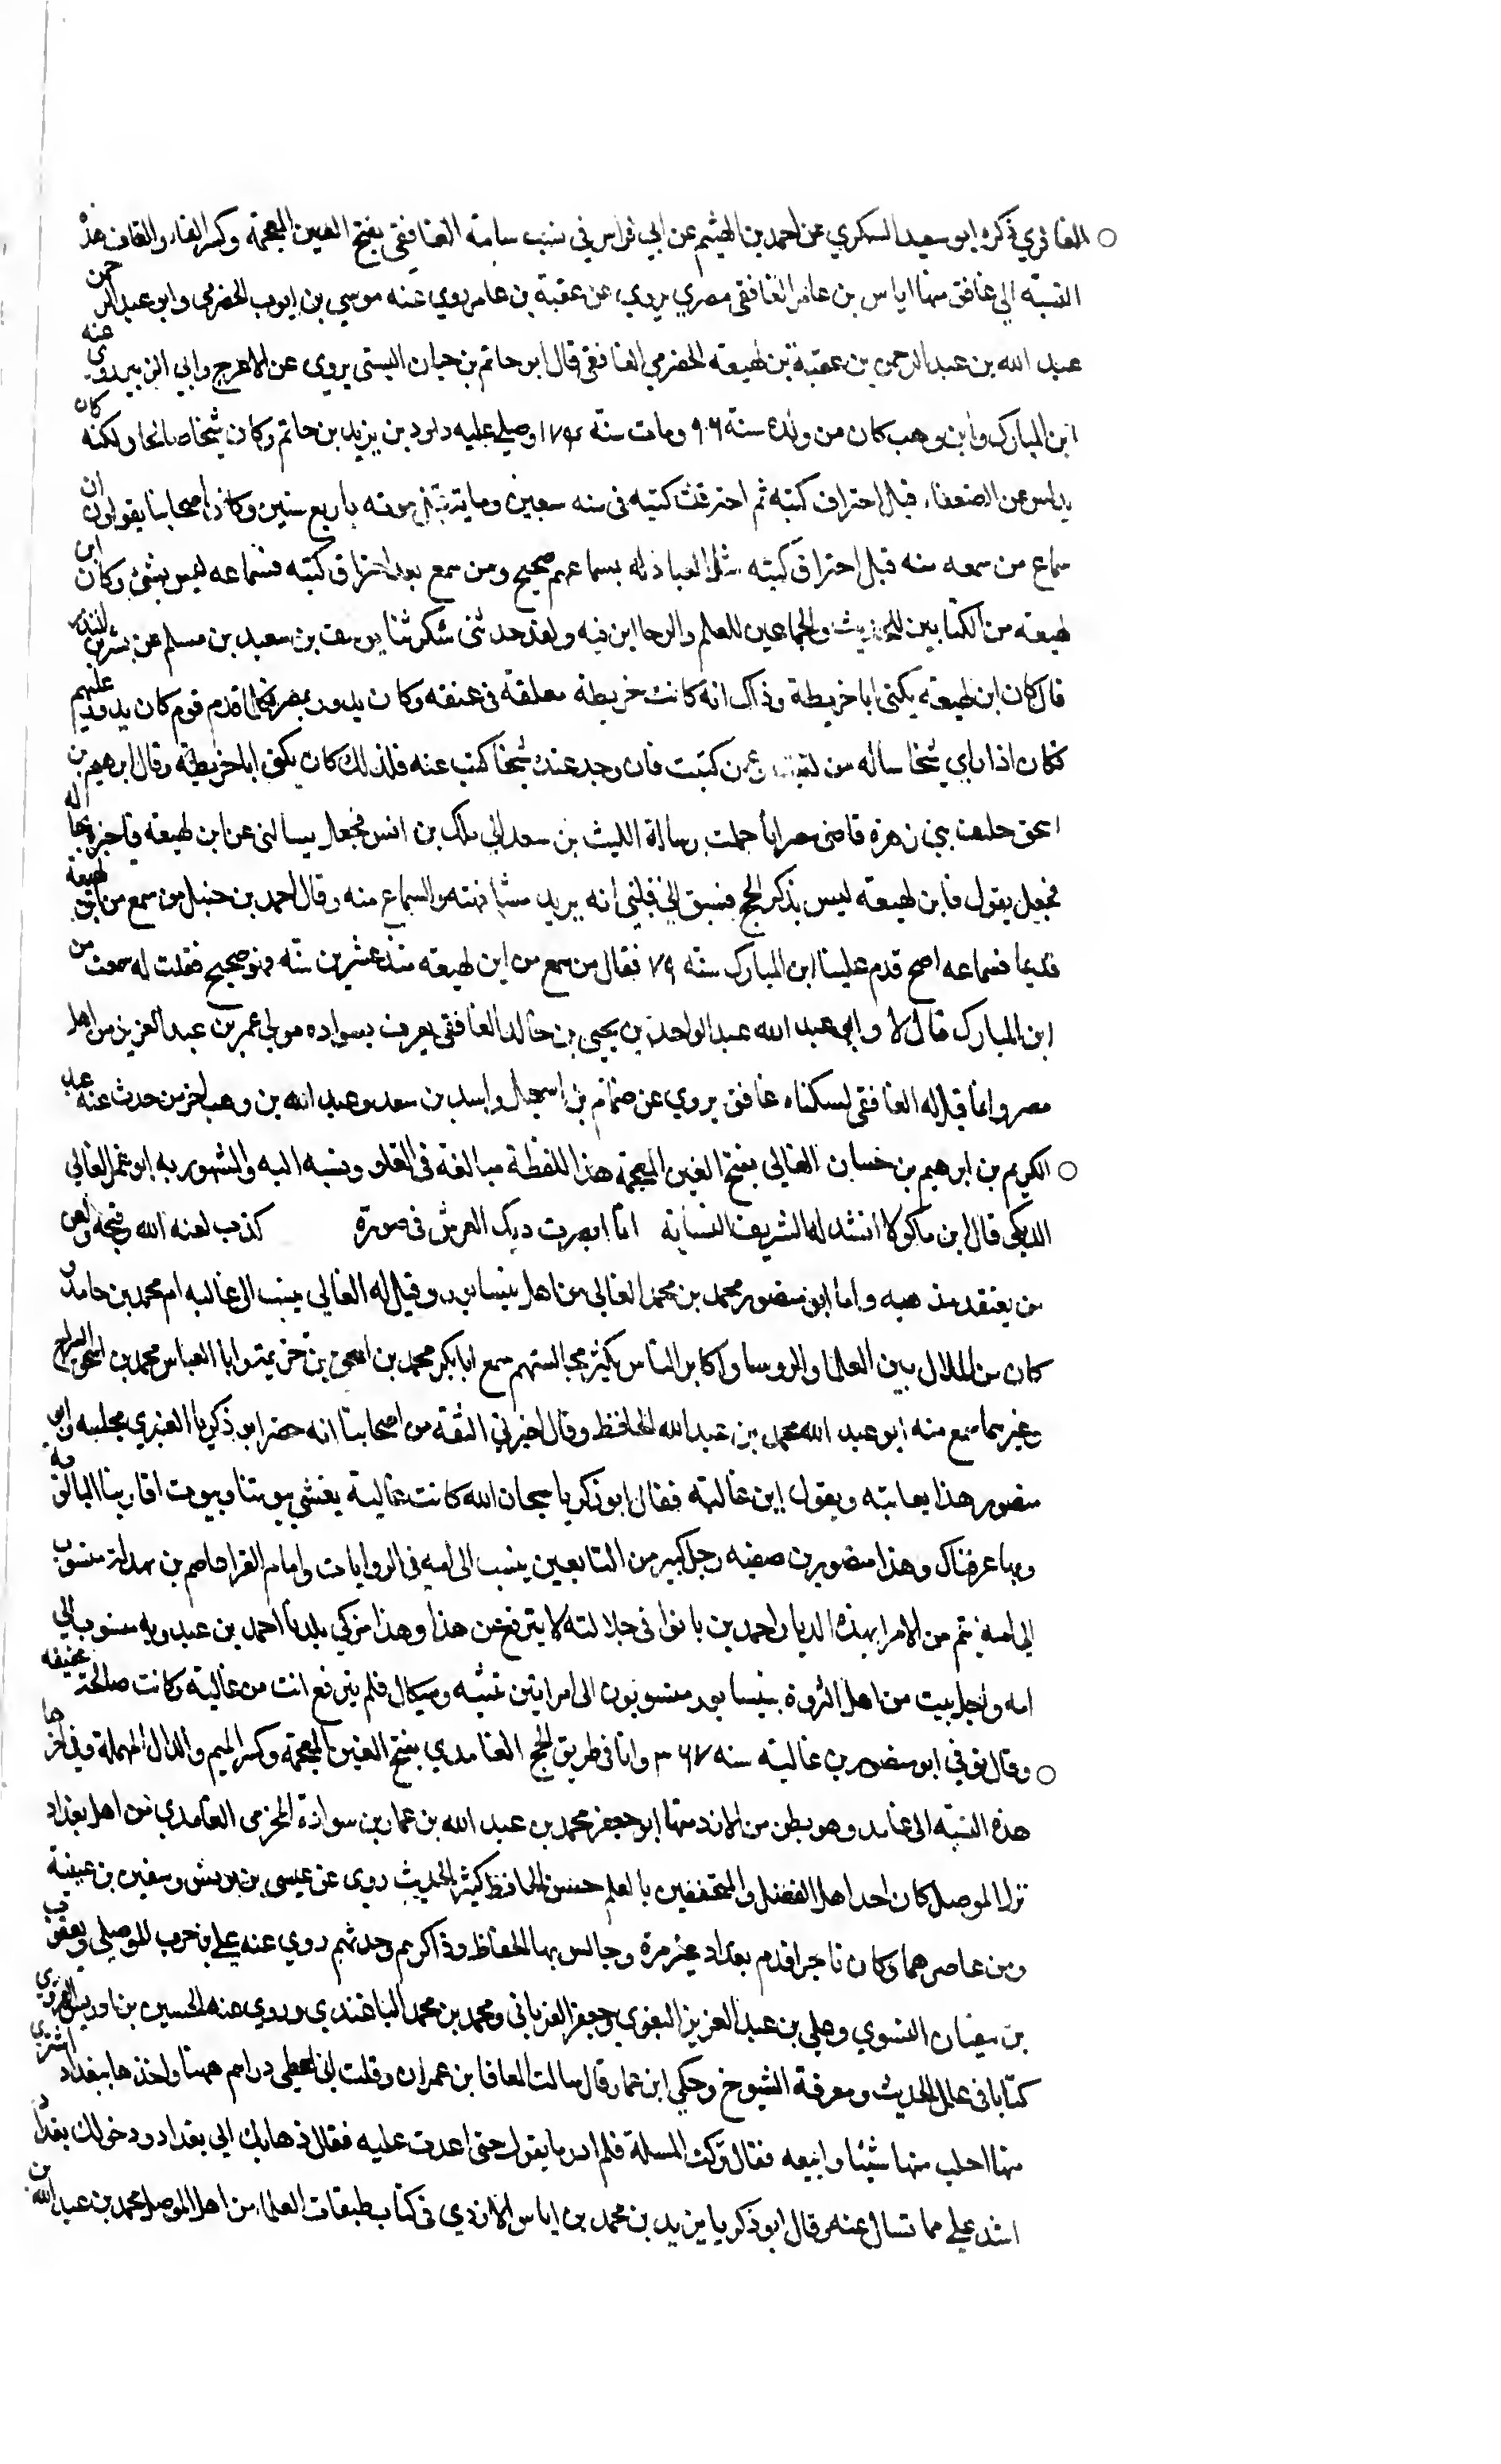 الغافري ذكره ابو سعيد السكري عن احمد بن الهيثم عن ابي فراس في نسب سامة الغافقي بفتح الغين المعجمة وكسر الفاء والقاف هذه
النسبة الي غافق منها اياس بن عامر الغافقي مصري يروي عن عقبة بن عامر روي عنه موسي بن ايوب الحضرمي وابو عبد الرحمن
عبد الله بن عبد الرحمن بن عقبة بن لهيعة الحضرمي الغافقي قال ابو حاتم بن حبان البستي يروي عن الاعرج وابي الزبير روي عنه
ابن المبارك وابن وهب كان من ولده سنة ٩٠٦ ومات سنة ١٧٤ وصلي عليه داود بن يزيد بن حاتم وكان شيخا صالحا ولكنه كان
يدلس عن الضعفاء قبل احتراق كتبه ثم احترقت كتبه في سنه سبعين وماية قبل موته باربع سنين وكان اصحابنا يقولون ان
سماع من سمعه منه قبل احتراق كتبه مثل العبادلة بسماعهم صحيح ومن سمع بعد احتراق كتبه فسماعه ليس بشئ وكان ابن
لهيعة من الكتابين للحديث والجماعين للعلم والرحالين فيه ولقد حدثني شكر ثنا يوسف بن سعيد بن مسلم عن بشر بن المنذر
قال كان ابن لهيعة يكني ابا خريطة وذاك انه كانت خريطة معلقة في عنقه وكان يدور بمصر فكلما قدم قوم كان يدور عليهم
فكان اذا راي شيخا ساله من لقيت وعمن كتبت فان وجد عنده شيخا كتب عنه فلذلك كان يكني ابا خريطة وقال ابرهيم بن
اسحق حليف بني زهرة قاضي مصر انا حملت رسالة الليث بن سعد الي ملك بن انس فجعل يسالني عن ابن لهيعة فاخبره بحاله
فجعل يقول فابن لهيعة ليس يذكر الحج فسبق الي قلبي انه يريد مشافهته والسماع منه وقال احمد بن حنبل من سمع من ابن لهيعة
قديما فسماعه اصح قدم علينا ابن المبارك سنة ٧٩ فقال من سمع من ابن لهيعة منذ عشرين سنة فهو صحيح فقلت له سمعت من
ابن المبارك قال لا وابو عبد الله عبد الواحد بن يحيي بن خالد الغافقي يعرف بسواده مولي عمر بن عبد العزيز من اهل
مصر وانما قيل له الغافقي لسكناه غافق يروي عن ضمام بن اسمعيل واسد بن سعد وعبد الله بن وهب اخر من حدث عنه عبد
الكريم بن ابرهيم بن حسان الغالي بفتح الغين المعجمة هذا اللفظة مبالغة في الغلو ونسبه اليه والمشهور به ابو عمر الغالي
الديكي قال ابن ماكولا انشد له الشريف النسابة انا ابصرت ديك العرش في صورة كذب لعنه الله وقبحه ولعن
من يعتقد مذهبه واما ابو منصور محمد بن محمد الغالي من اهل نيسابور وقيل له الغالي ينسب الي غالية ام محمد بن حامد و
كان من الدلال بين العلما والروسا واكابر الناس يكثر مجالستهم سمع ابا بكر محمد بن اسحق بن خزيمة وابا العباس محمد بن اسحق السراج
وغيرهما سمع منه ابو عبد الله محمد بن عبد الله الحافظ وقال اخبرني الثقة من اصحابنا انه حضر ابو زكريا العنبري مجلسه وابو
منصور هذا يعاتبه ويقول ابن غالية فقال ابو زكريا سبحان الله كانت غالية يغشي بيوتنا وبيوت اقاربنا البالوية
وبها عرفناك وهذا منصور بن صفية رجل كبير من التابعين ينسب الي امه في الروايات وامام القرا عاصم بن بهدلة منسوب
الي امه ثم من الامرا بهذه الديار احمد بن بانوا في جلالته لا يترفع عن هذا وهذا مزكي بلدنا احمد بن عبدويه منسوب الي
امه واجل بيت من اهل الثروة بنيسابور منسوبون الي امراتين عتبة وميكال فلم يترفع انت من غالية وكانت صالحة عفيفة
وقال توفي ابو منصور بن غالية سنه ٣٦٧ وانا في طريق الحج الغامدي بفتح الغين المعجمة وكسر الميم والدال المهملة وفي اخرها
هذه النسبة الي غامد وهو بطن من الازد منها ابو جعفر محمد بن عبد الله بن عمار بن سوادة المخرمي الغامدي من اهل بغداد
نزل الموصل كان احد اهل الفضل والمتحققين بالعلم حسن الحافظ كثير الحديث روي عن عيسي بن يونس وسفين بن عيينة
ومن عاصرهما وكان تاجرا قدم بغداد غير مرة وجالس بها الحفاظ وذاكرهم وحدثهم روي عنه علي بن حرب الموصلي ويعقوب
بن سفيان النسوي وعلي بن عبد العزيز البغوي وجعفر الفريابي ومحمد بن محمد الباغندي وروي عنه الحسين بن ادريس الهروي
كتابا في علل الحديث ومعرفة الشيوخ وحكي ابن عمار قال سالت المعافا بن عمران وقلت اني اعطي دراهم ههنا واخذها ببغداد اشتري
منها احلب منها شيئا وابيعه فقال تركت المسلة فلم ادر ما يقول حتي اعدت عليه فقال ذهابك الي بغداد ودخولك بغداد
اشد علي مما تسال عنه وقال ابو زكريا يزيد بن محمد بن اياس الازدي في كتاب طبقات العلما من اهل الموصل محمد بن عبد الله بن